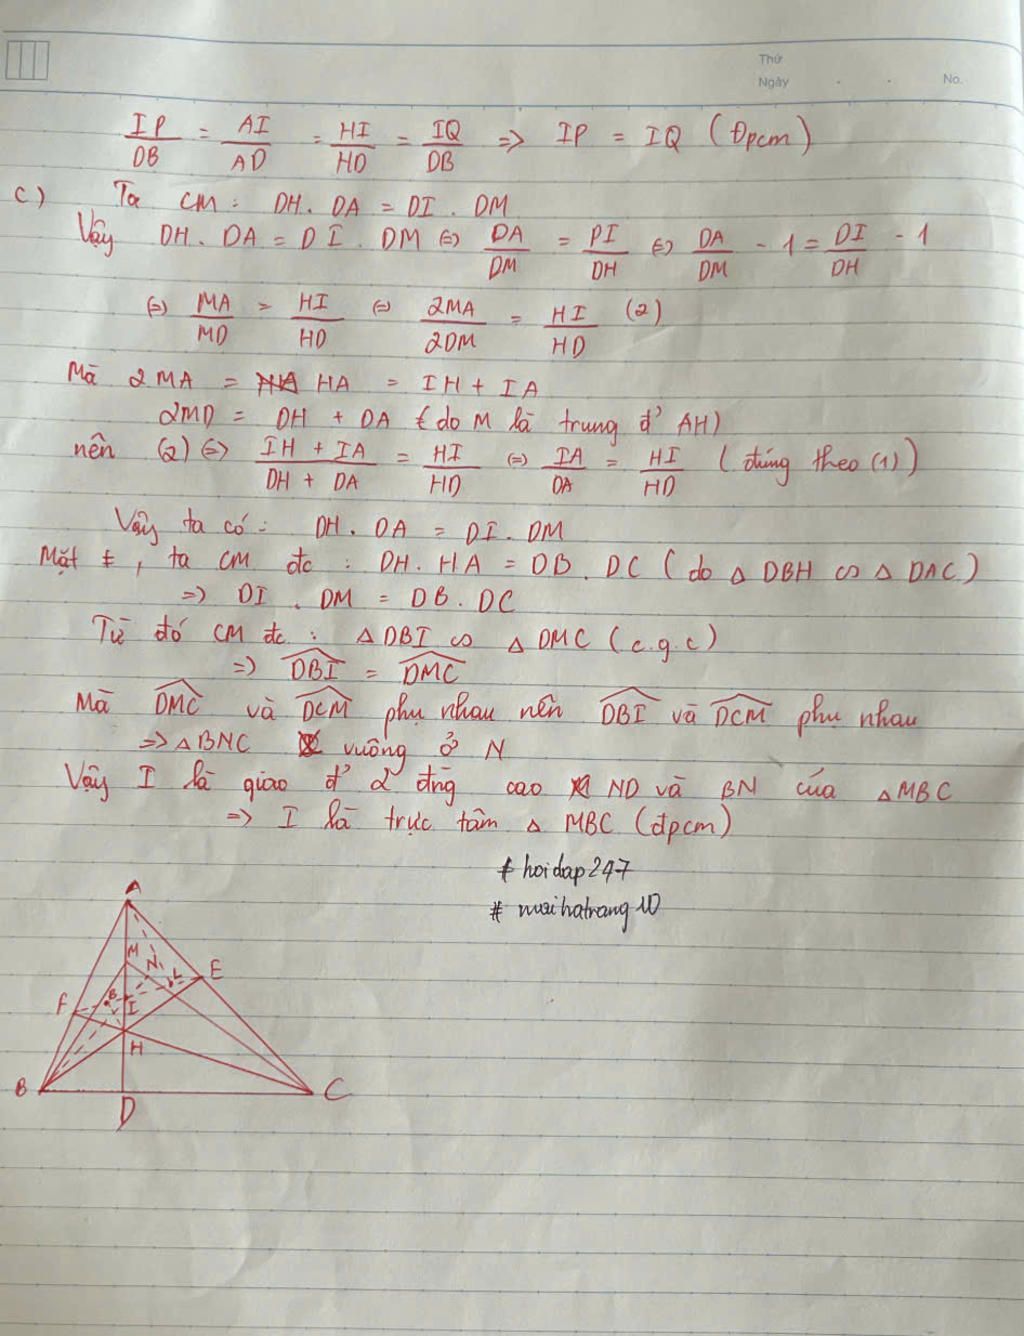 Thứ
Ngày . . No.
IP/DB = AI/AD = HI/HD = IQ/DB => IP = IQ (Đpcm)
c) Ta CM : DH. DA = DI . DM
Vậy DH. DA = DI . DM (=) DA/DM = DI/DH (=) DA/DM - 1 = DI/DH - 1
(=) MA/MD = HI/HD (=) 2MA/2DM = HI/HD (2)
Mà 2MA = HA = IH + IA
2MD = DH + DA (do M là trung đ' AH)
nên (2) (=) IH + IA/DH + DA = HI/HD (=) IA/DA = HI/HD (đúng theo (1))
Vậy ta có : DH. DA = DI. DM
Mặt ≠, ta CM đc : DH. HA = DB . DC (do Δ DBH ∽ Δ DAC)
=> DI . DM = DB. DC
Từ đó CM đc : Δ DBI ∽ Δ DMC (c.g.c)
=> DBI = DMC
Mà DMC và DCM phụ nhau nên DBI và DCM phụ nhau
=> Δ BNC vuông ở N
Vậy I là giao đ' 2 đng cao ND và BN của Δ MBC
=> I là trực tâm Δ MBC (đpcm)
# hoidap247
# maihatrang10
A
M
N
L
E
F
I
H
B
D
C